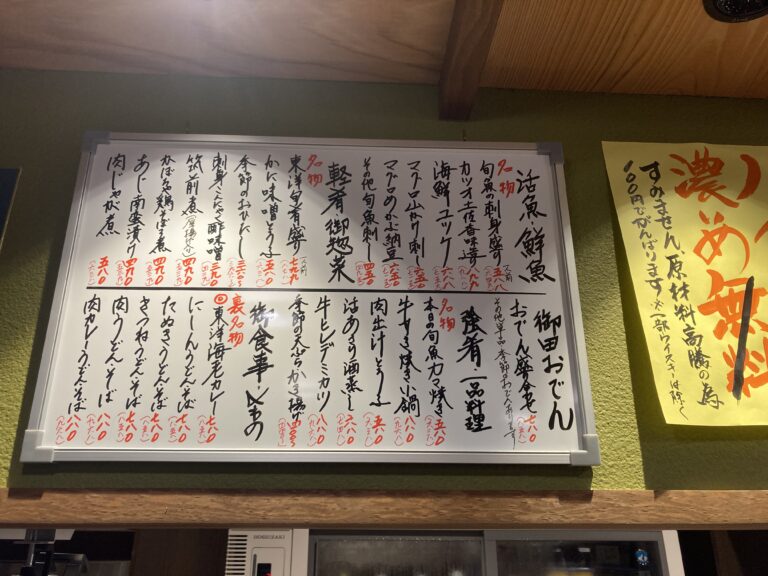 活魚鮮魚
名物
旬魚の刺身盛り 一人前 五八〇
カツオ土佐香味造り 八八〇
海鮮ユッケ 六八〇
マグロ山かけ 刺し 六五〇
マグロめかぶ納豆 五八〇
その他旬魚刺し 四五〇
軽肴 御惣菜
名物
東洋旬肴盛り 一人前 七九九
かに味噌とうふ 五八〇
季節のおひたし 三六〇
刺身こんにゃく酢味噌 三九〇
筑前煮 四九〇
かぼちゃ鶏そぼろ煮 四九〇
あじ南蛮漬け 四九〇
肉じゃが煮 五八〇
御田おでん
おでん盛合せ 七八〇
その他単品 季節のおでんあります
強肴・一品料理
名物
本日の旬魚カマ焼き 五八〇
牛すき焼き小鍋 八八〇
肉出汁とうふ 五八〇
活あさり酒蒸し 六八〇
牛ヒレデミカツ 八八〇
季節の天ぷらかき揚げ
御食事・〆もの
裏名物
東洋海老カレー 七八〇
にしんうどん・そば 八八〇
たぬきうどん・そば 七八〇
きつねうどん・そば 七八〇
肉うどん・そば 八八〇
肉カレーうどん・そば 八八〇
濃め無料
すみません原材料高騰の為
100円でがんばります ※一部ウイスキーは除く
HOSHIZAKI